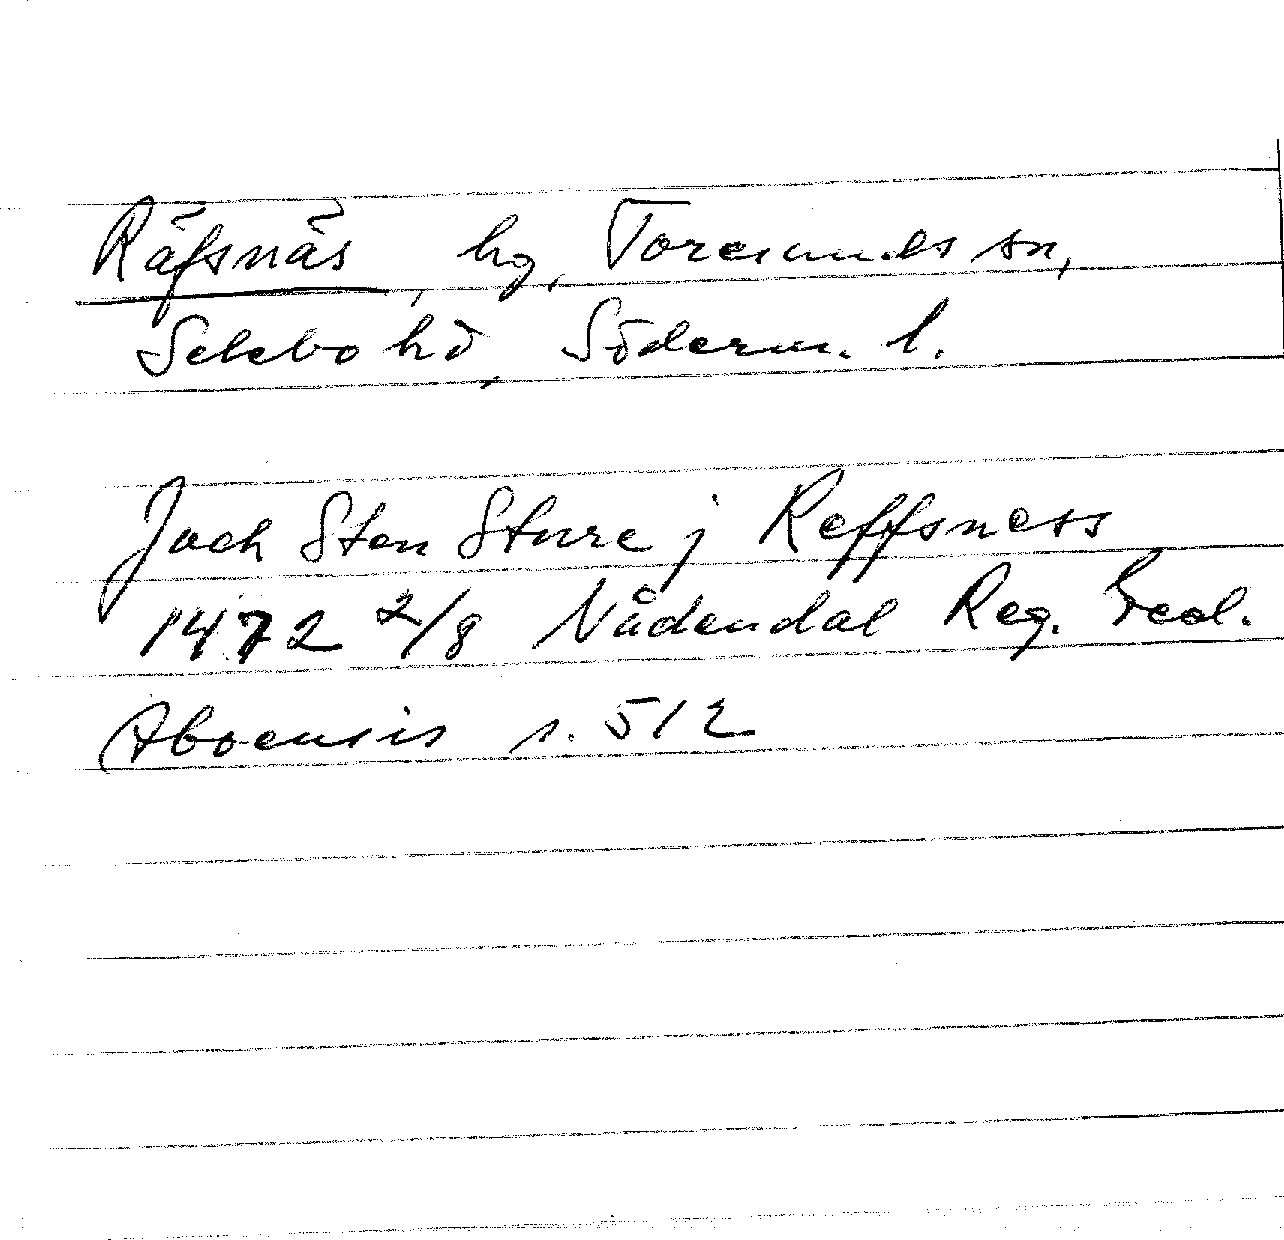 Räfsnäs, hg, Toresunds sn,
Selebo hd, Söderm. l.
Jach Sten Sture j Reffsness
1472 2/8 Nådendal Reg. Eccl.
Aboensis s. 512